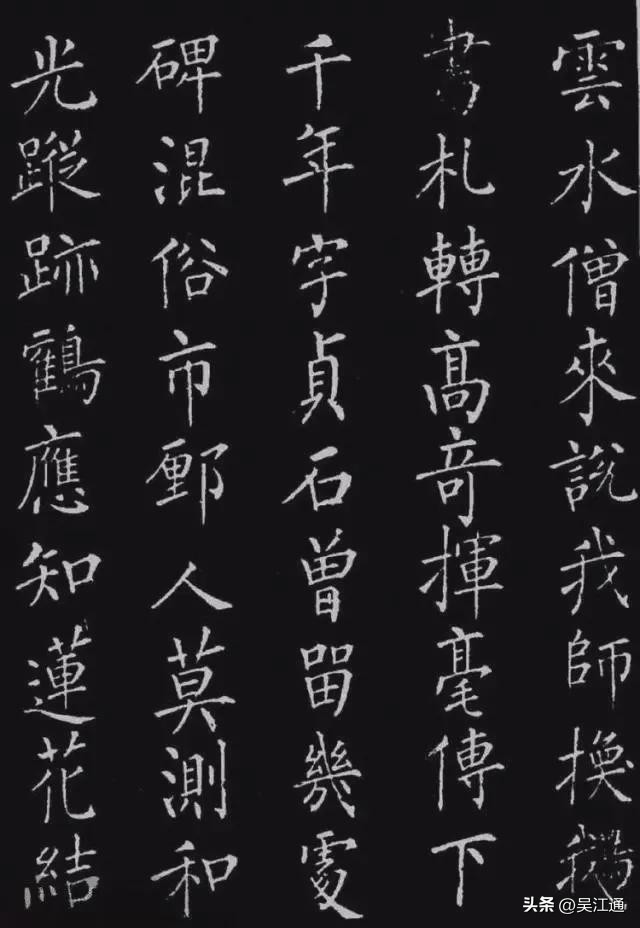 雲水僧來說我師換鵝
書札轉高竒揮毫傳下
千年字貞石曾留幾處
碑混俗市鄽人莫測和
光蹤跡鶴應知蓮花結
头条@吴江通